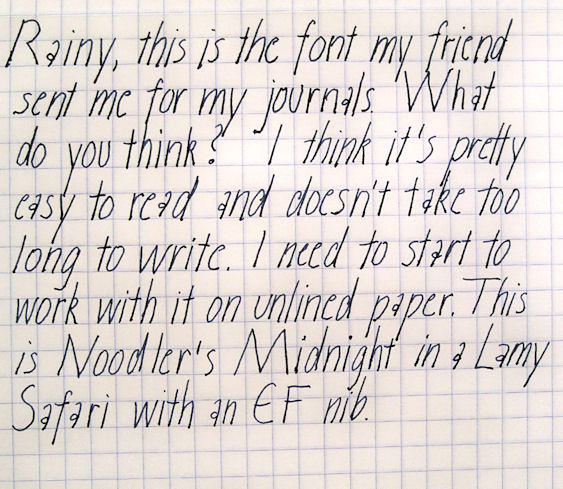 Rainy, this is the font my friend
sent me for my journals. What
do you think? I think it's pretty
easy to read and doesn't take too
long to write. I need to start to
work with it on unlined paper. This
is Noodler's Midnight in a Lamy
Safari with an EF nib.